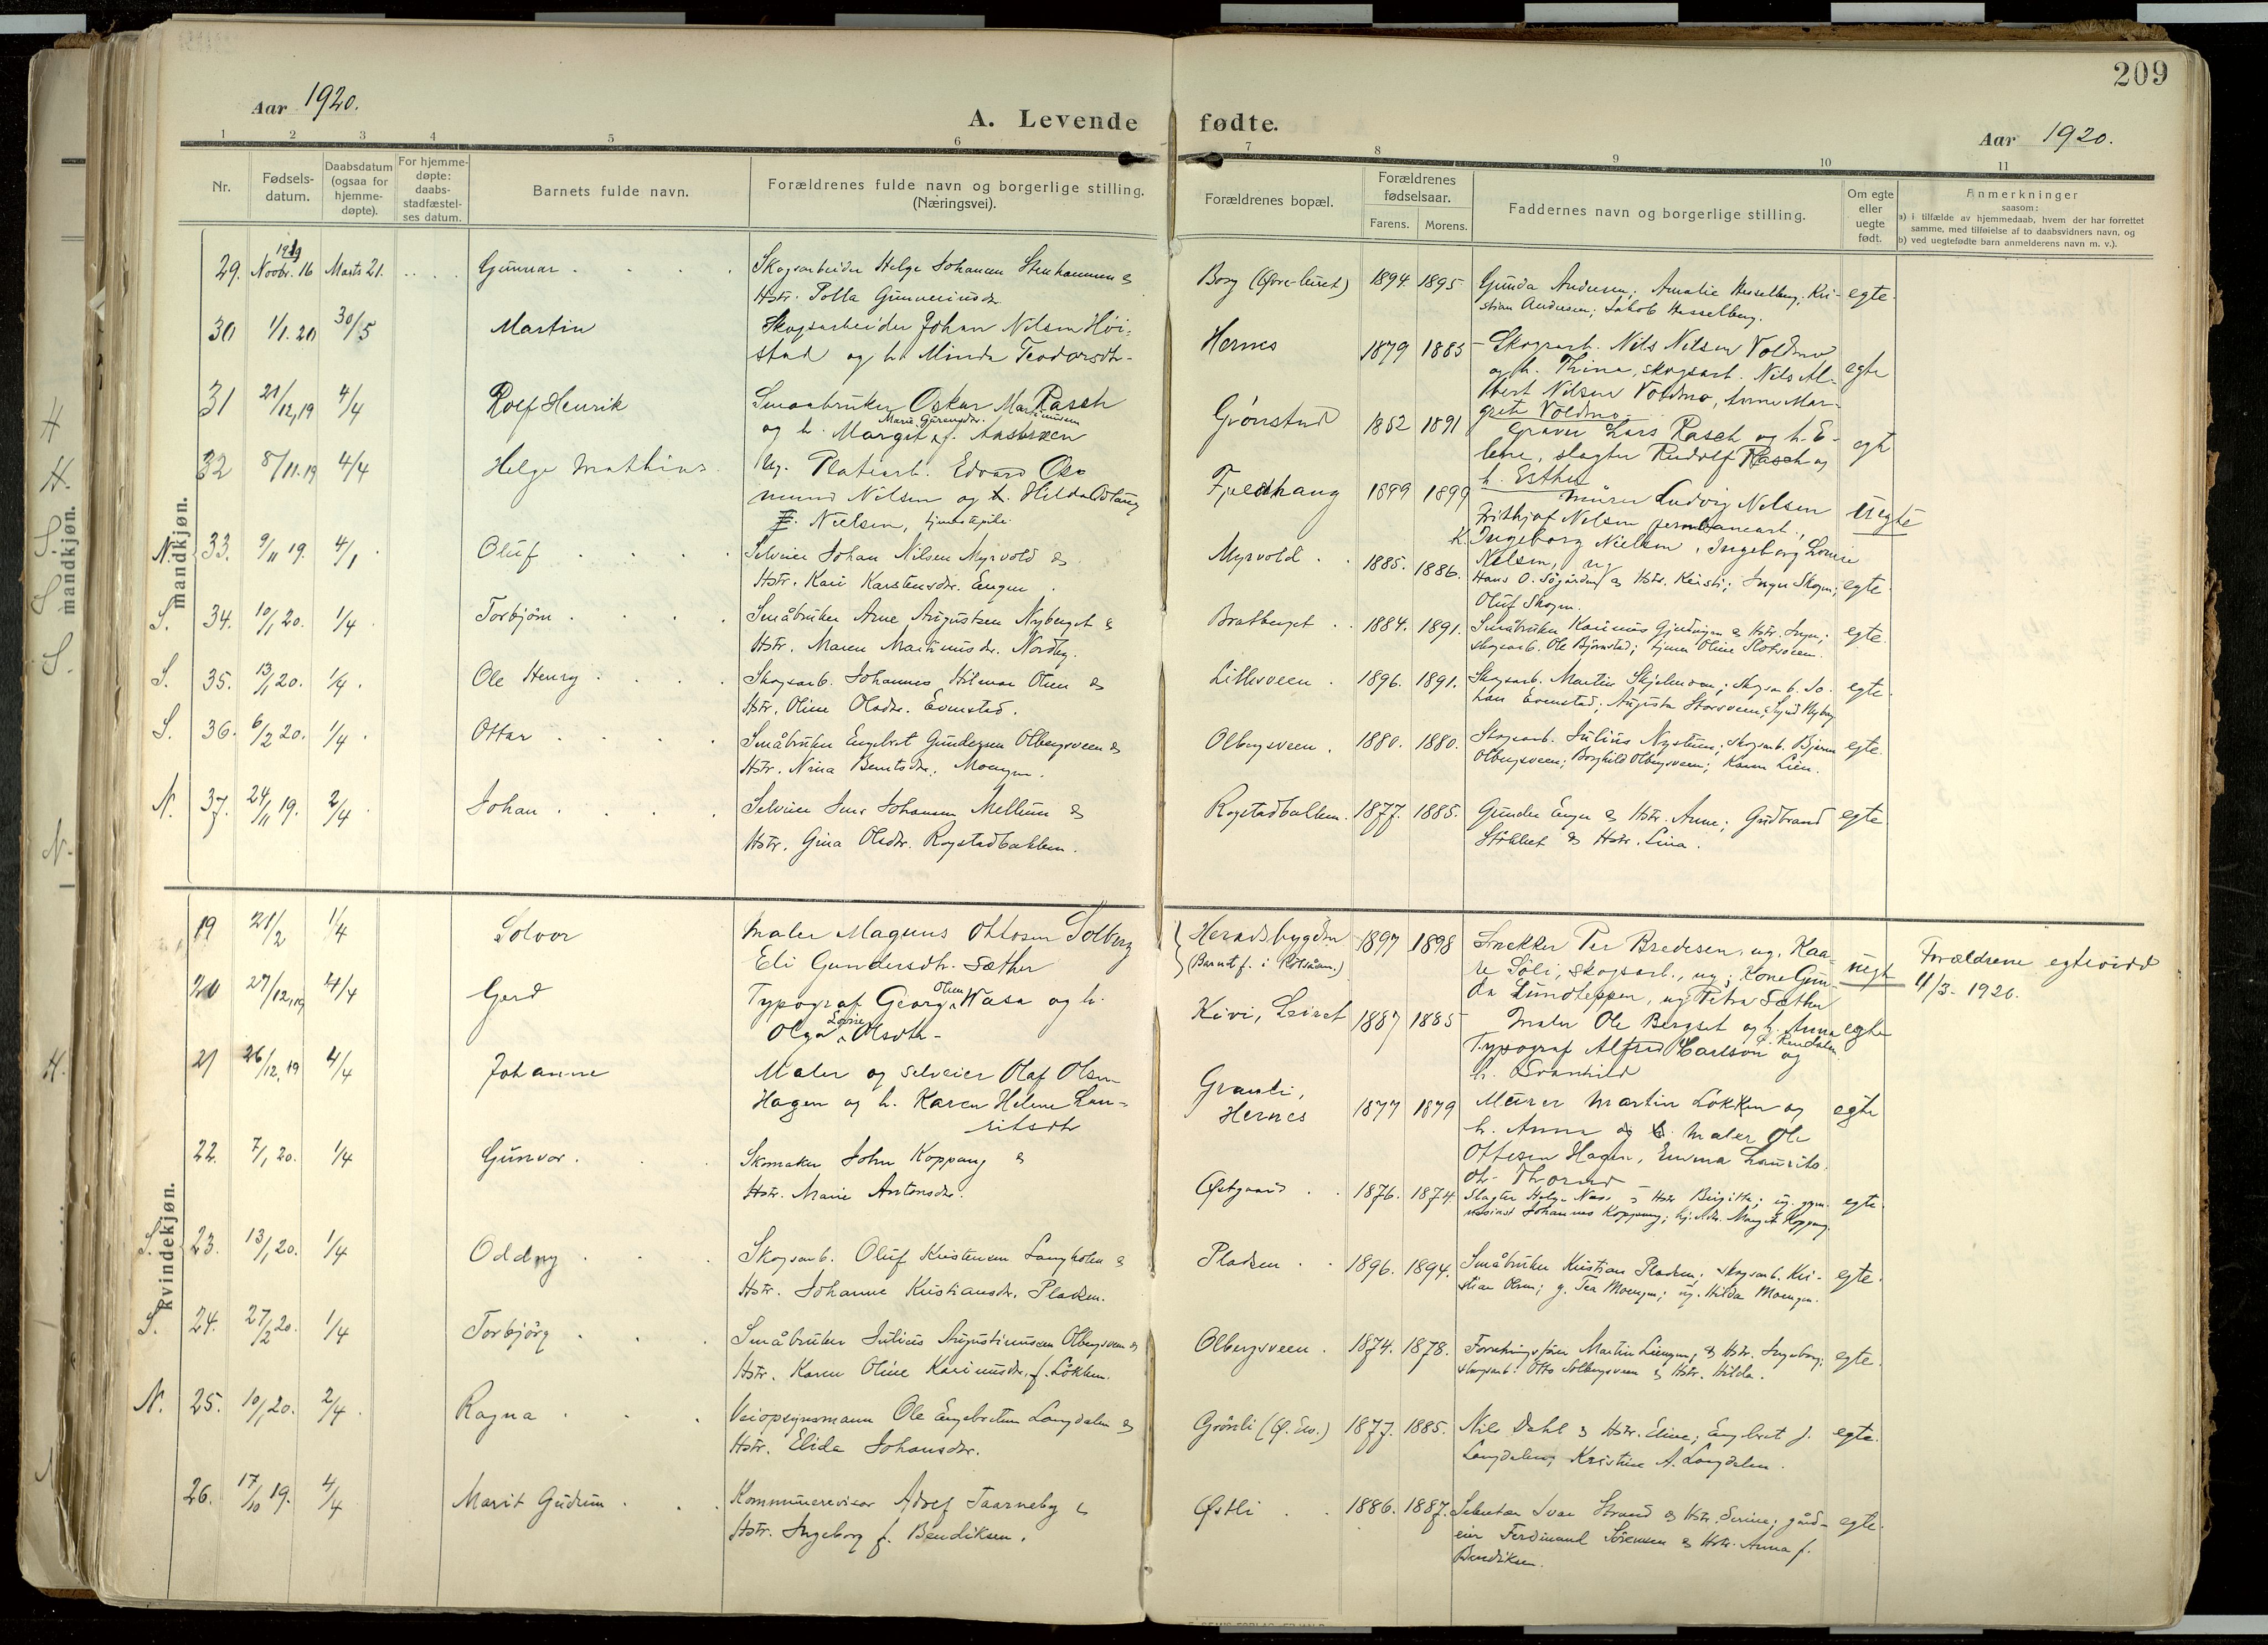 209
Aar 1920.
A. Levende fødte.
Aar 1920.
1 2 3 4 5 6 7 8 9 10 11
Nr.
Fødselsdatum.
Daabsdatum (ogsaa for hjemmedøpte).
For hjemmedøpte: daabsstadfæstelses datum.
Barnets fulde navn.
Forældrenes fulde navn og borgerlige stilling. (Næringsvei).
Forældrenes bopæl.
Forældrenes fødselsaar.
Farens. Morens.
Faddernes navn og borgerlige stilling.
Om egte eller uegte født.
Anmerkninger
saasom:
a) i tilfælde av hjemmedaab, hvem der har forrettet samme, med tilføielse af to daabsvidners navn, og
b) ved uegtefødte barn anmelderens navn m. v.).
mandkjøn.
29. 1919 Novbr. 16 Marts 21. Gunnar
Skogsarbeider Helge Johansen Stenhammer &
Hstr. Polla Gunneriusdr.
Borg (Øvre-leiret) 1894. 1895
Gunda Andersen; Amalie Hesselberg; Kri-
stian Andersen; Jakob Hesselberg.
egte.
30 1/1.20 30/5 Martin
Skogsarbeider Johan Nilsen Høi-
stad og h. Minda Teodorsdtr.
Hernes 1879 1885
Skogsarb. Nils Nilsen Voldmo
og h. Thina, skogsarb. Nils Al-
bert Nilsen Voldmo, Anne Mar-
grete Voldmo.
egte
31 21/12,19 4/4 Rolf Henrik
Smaabruker Oskar Martinusen Rasch
og h. Margit Marie Gürengdtr. f. Aasbræen
Grønstad 1852 1891
Graver Lars Rasch og h. E-
lene, slagter Rudolf Rasch og
h. Esther
egt
32 8/11.19 4/4 Helge Mathias
Ug. Platearb. Edvard Os-
mund Nilsen og Hilda Oslaug
Nielsen, tjenestepike
Fjeldhaug 1899 1899
Murer Ludvig Nelsen
Frithjof Nelsen jernbanearb.,
k. Ingeborg Nielsen, Ingeborg Lovise
Nelsen, ug.
uegte
N. 33. 9/11 19. 4/1 Oluf
Selveier Johan Nilsen Myrvold &
Hstr. Kari Karstensdr. Engen
Myrvold 1885. 1886.
Hans O. Søgården & Hstr. Kristi; Inger Skogen;
Oluf Skogen.
egte.
S. 34. 10/1 20. 1/4 Torbjørn
Småbruker Arne Augustsen Nyberget &
Hstr. Maren Martinusdr. Nordby.
Bratberget 1884. 1891.
Småbruker Karinus Gjetvingen & Hstr. Inger;
Skogsarb. Ole Bjørnstad; tjener Oline Slotsveen.
egte.
S. 35. 13/1 20. 1/4. Ole Henry
Skogsarb. Johannes Hilmar Olsen &
Hstr. Oline Olsdr. Evenstad.
Lillesveen 1896. 1891.
Skogsarb. Martin Skjelmoen; skogsarb. Jo-
han Evenstad; Augusta Storsveen; Sigrid Nyborg
egte.
S. 36. 6/2 20. 1/4. Ottar
Småbruker Engebret Gundersen Olbergsveen &
Hstr. Nina Berntsdr. Moengen.
Olbergsveen. 1880. 1880.
Skogsarb. Julius Nystuen; skogsarb. Bjarne
Olbergsveen; Borghild Olbergsveen; Karen Lien.
egte.
N. 37. 24/11 19. 2/4. Johan
Selveier Jens Johansen Mellum &
Hstr. Gina Olsdr. Rogstadbakken.
Rogstadbakken. 1877. 1885.
Gunder Enger & Hstr. Anne; Gudbrand
Stikket & Hstr. Lina.
egte.
kvindekjøn.
19 21/2 1/4 Solvor
Maler Magnus Ottosen Solberg
Eli Gundersdtr. Sæther
Heradsbygden 1897 1898
(Barnet f. i Kolsåsen.)
Snekker Per Bredesen, ug. Kaa-
re Søli, skogsarb., ug; Kone Gun-
da Lundteppen, ug. Petra Sæther
uegt
Forældrene egteviet
11/3-1920.
20 27/12,19 4/4 Gerd
Typograf Georg Olsen Wasa og h.
Olga Lovise Olsdtr.
Kivi, Leiret 1887 1885
Maler Ole Bergset og h. Anna
f. Rendalen
Typograf Alfred Carlson og
h. Svanhild
egte
21 26/12,19 4/4 Johanne
Maler og selveier Olaf Olsen
Hagen og h. Karen Helene Lau-
ritsdtr
Granli,
Hernes 1877 1879
Murer Martin Løkken og
h. Anna og maler Ole
Ottesen Hagen, Emma Laurits-
dtr. Thorud
egte
22. 7/1 20. 1/4 Gunvor.
Skomaker John Koppang &
Hstr. Marie Antonsdr.
Østgaard 1876. 1874.
Slagter Helge Næss & Hstr Birgitte; ug. gym-
nasiast Johannes Koppang; hj.dtr. Margit Koppang.
egte.
S. 23. 13/1 20. 1/4 Oddny
Skogsarb. Oluf Kristensen Langholen &
Hstr. Johanne Kristiansdr. Pladsen.
Pladsen 1896. 1894.
Småbruker Kristian Pladsen; skogsarb. Kri-
stian Olsen; g. Tea Moengen; ug. Hilda Moengen.
egte.
S. 24. 27/2 20. 1/4 Torbjörg
Småbruker Julius Augustinussen Olbergsveen &
Hstr. Karen Oline Karinusdr. f. Løkken.
Olbergsveen. 1874. 1878.
Forretningsfører Martin Liengen & Hstr. Ingeborg;
skogsarb. Otto Solbergsveen & Hstr. Hilda.
egte.
N. 25. 10/1 20. 2/4. Ragna
Veiopsynsmann Ole Engebretsen Langdalen &
Hstr. Elida Johansdr.
Grønli (Ø. Elv.) 1877. 1885.
Nils Dahl & Hstr. Eline; Engebret J.
Langdalen; Kristine A. Langdalen.
egte.
26. 17/10 19. 4/4 Marit Gudrun
Kommunerevisor Adolf Taarneby &
Hstr. Ingeborg f. Bendiksen.
Østli 1886. 1887.
Sekretær Ivar Strand & Hstr. Serine; gård-
eier Ferdinand Sørensen & Hstr. Anna f.
Bendiksen.
egte.